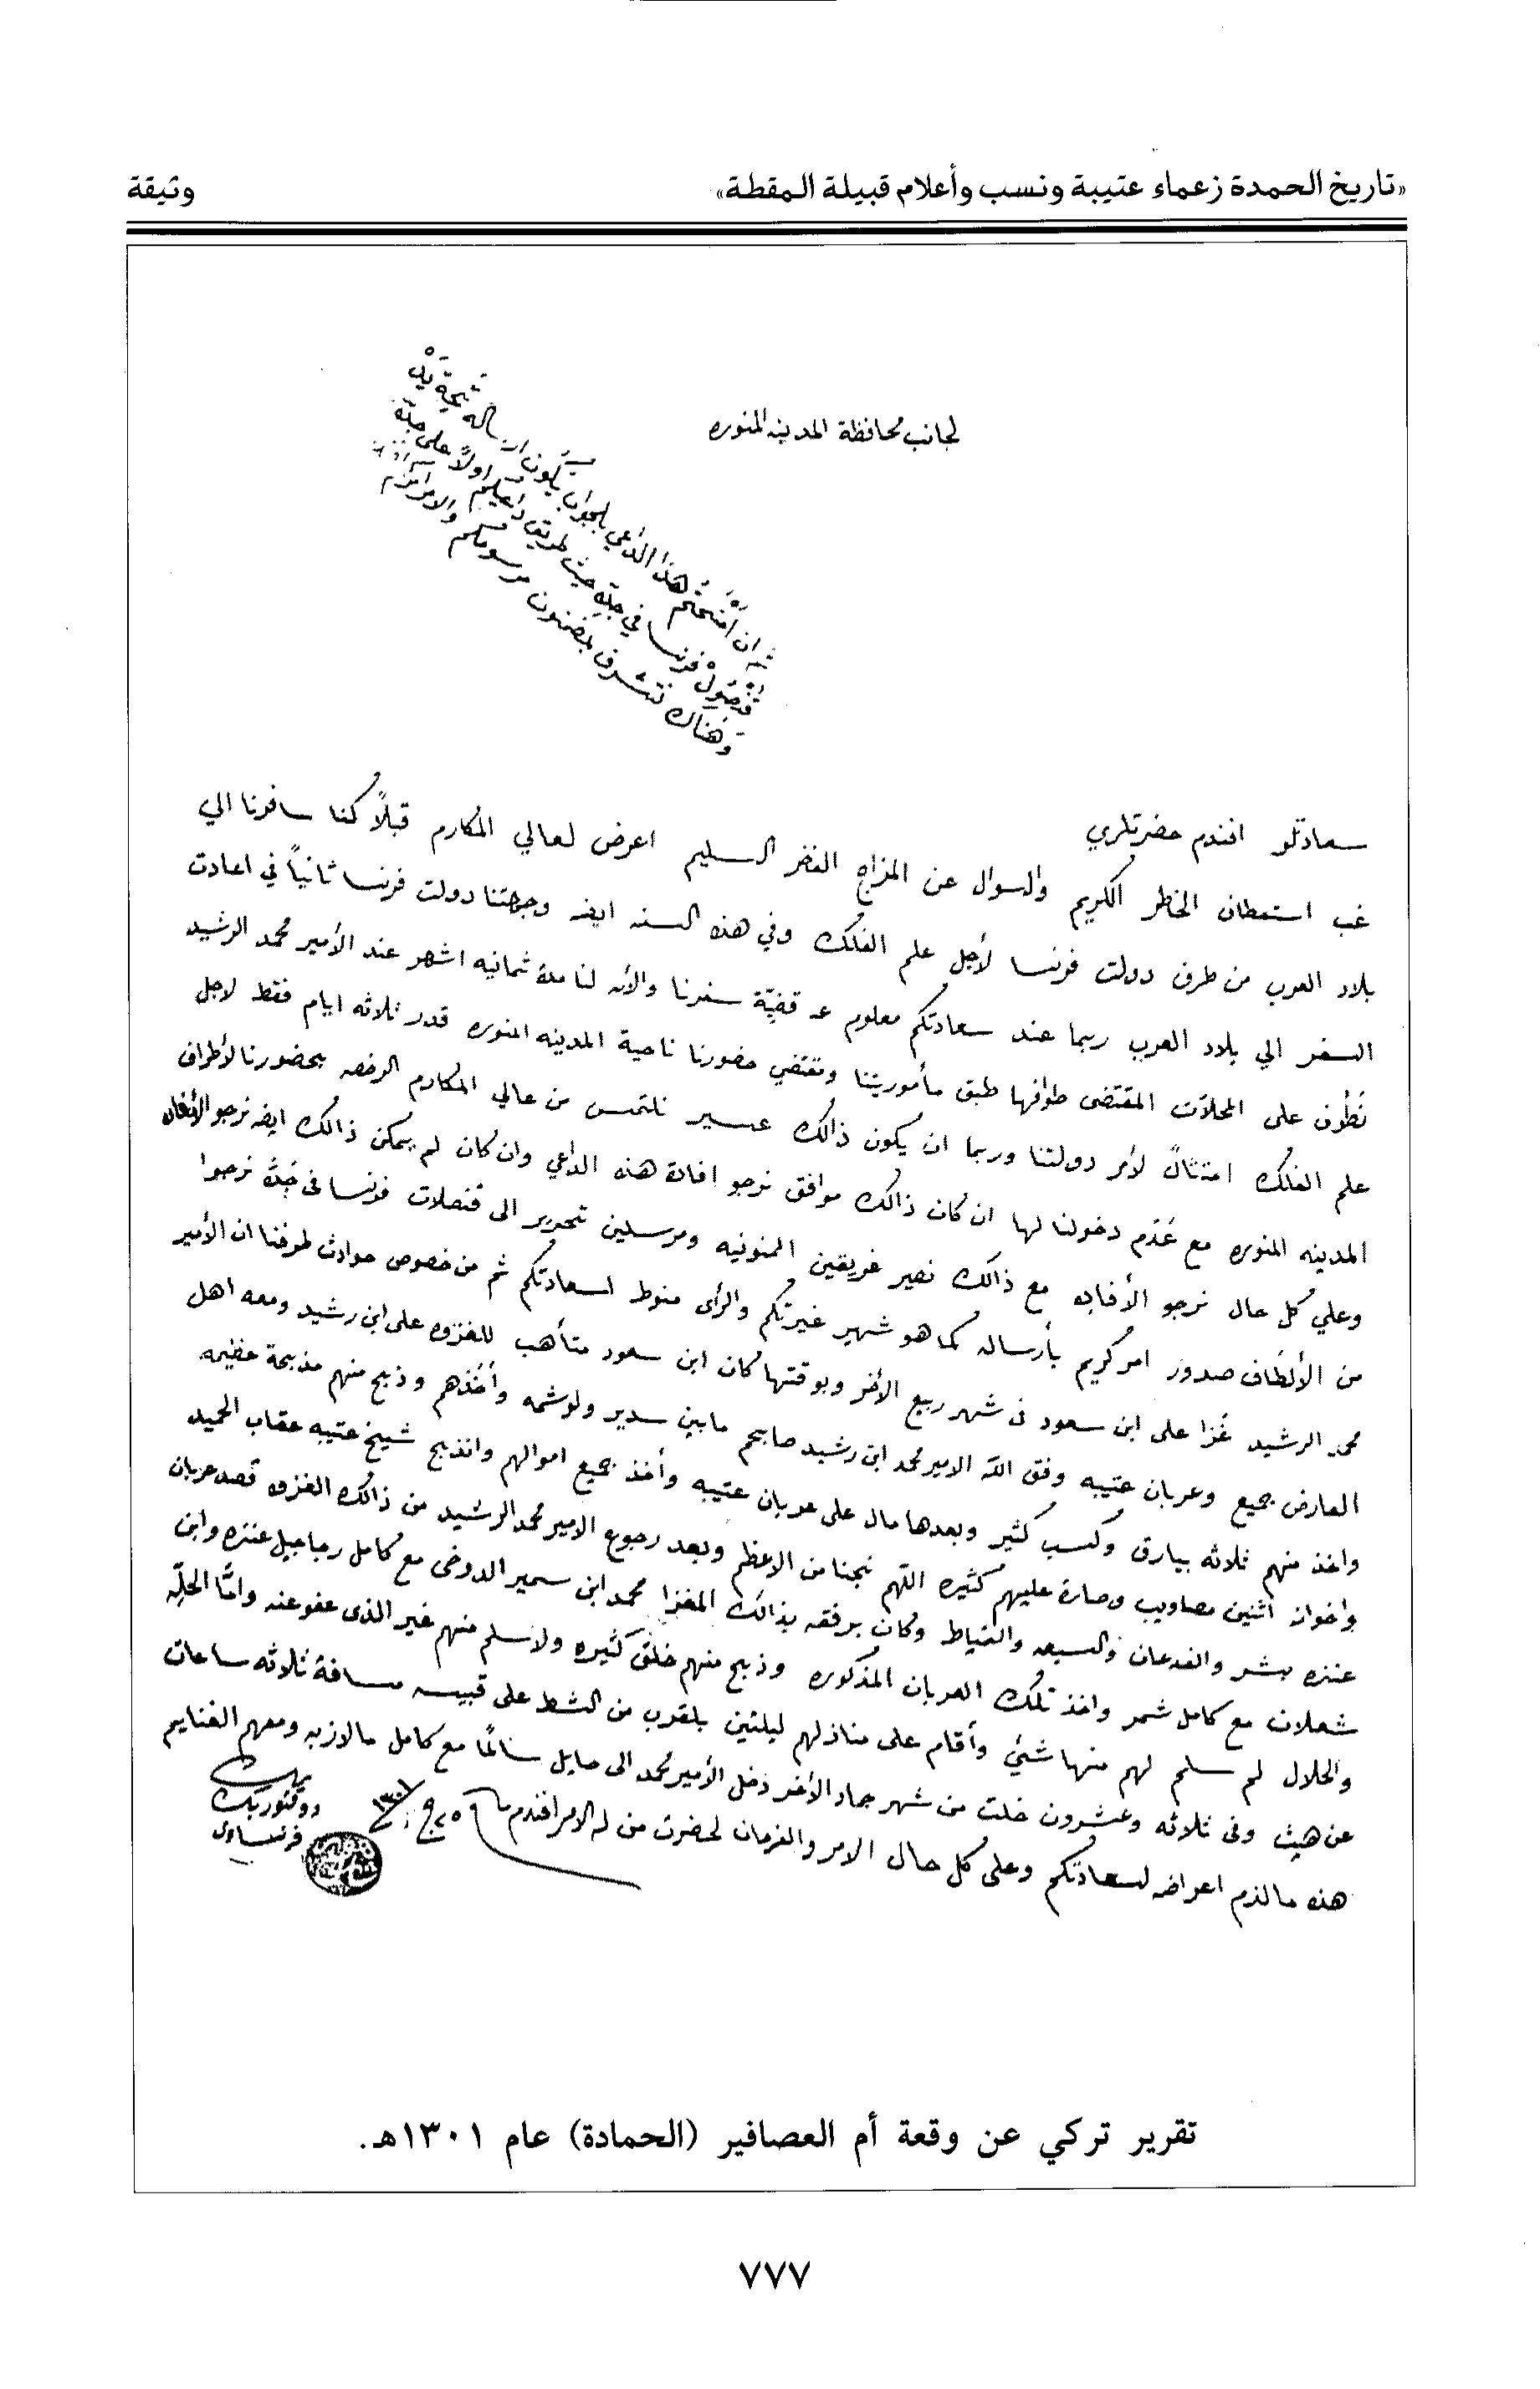 «تاريخ الحمدة زعماء عتيبة ونسب وأعلام قبيلة المقطة»
وثيقة
لجانب محافظة المدينه المنوره
ان امنحتم هذا الداعي بلجواب يكون ارساله
قنصول فرنسا في جدة حيث طريق داعيكم اولاً على جدة
وهناك نتشرف بمضنون مرسومكم والامر امركم
سعادتلو افندم حضرتلري
غب استعطاف الخاطر الكريم والسوال عن المزاج الفخر السليم اعرض لعالي المكارم قبلاً كنا سافرنا الي
بلاد العرب من طرف دولت فرنسا لأجل علم الفلك وفي هذه السنه ايضه وجهتنا دولت فرنسا ثانياً في اعادت
السفر الي بلاد العرب ربما عند سعادتكم معلوم عن قضيّة سفرنا والأن لنا مدة ثمانيه اشهر عند الأمير محمد الرشيد
نطوف على المحلات المقتضى طوافها طبق مأموريتنا وتقتضي حضورنا ناحية المدينه المنوره قدر ثلاثه ايام فقط لاجل
علم الفلك امتثالاً لأمر دولتنا وربما ان يكون ذالك عسير نلتمس من عالي المكارم الرخصه بحضورنا لأطراف
المدينه المنوره مع عدم دخولنا لها ان كان ذالك موافق نرجو افادة هذه الداعي وان كان لم يمكن ذالك ايضه نرجو الأفاده
وعلي كل حال نرجو الأفاده مع ذالك نصير غريقين الممنونيه ومرسلين تحرير الى قنصلات فرنسا في جدة نرجوا
من الألطاف صدور امر كريم بأرساله كما هو شهير غيرتكم والرأى منوط لسعادتكم ثم من خصوص حوادث طرفنا ان الأمير
محمد الرشيد غزا على ابن سعود في شهر ربيع الأخر وبوقتها كان ابن سعود متأهب للغزوه على ابن رشيد ومعه اهل
العارض جميع وعربان عتيبه وفق الله الامير محمد ابن رشيد صابحهم مابين سدير ولوشمه وأخذهم وذبح منهم مذبحة عظيمه
واخذ منهم ثلاثه بيارق وكسب كثير وبعدها مال على عربان عتيبه وأخذ جميع اموالهم وانذبح شيخ عتيبه عقاب الحميد
واخوانه اثنين مصاويب وصارة عليهم كثيره اللهم نجنا من الاعظم وبعد رجوع الامير محمد الرشيد من ذالك الغزوه قصد عربان
عنزه بشر والفدعان والسبعه والقياط وكان برفقه بذالك المغزا محمد ابن سمير الدوخي مع كامل رجاجيل عنزه وابن
شعلان مع كامل شمر واخذ تلك العربان المذكوره وذبح منهم خلق كثيره ولا سلم منهم غير الذى عفو عنه وامّا الحلّه
والحلال لم سلم لهم منها شئي وأقام على منازلهم ليلتين بلقرب من الشط على قبيسه مسافة ثلاثه ساعات
عن هيث وفى ثلاثه وعشرون خلت من شهر جماد الأخر دخل الأمير محمد الى حايل سالماً مع كامل مالازبه ومعهم الغنايم
هذه مالزم اعراضه لسعادتكم وعلى كل حال الامر والفرمان لحضرت من له الامر افندم
٢٥ ج ١٣٠١
فرنساوى
تقرير تركي عن وقعة أم العصافير (الحمادة) عام ١٣٠١هـ.
٧٧٧